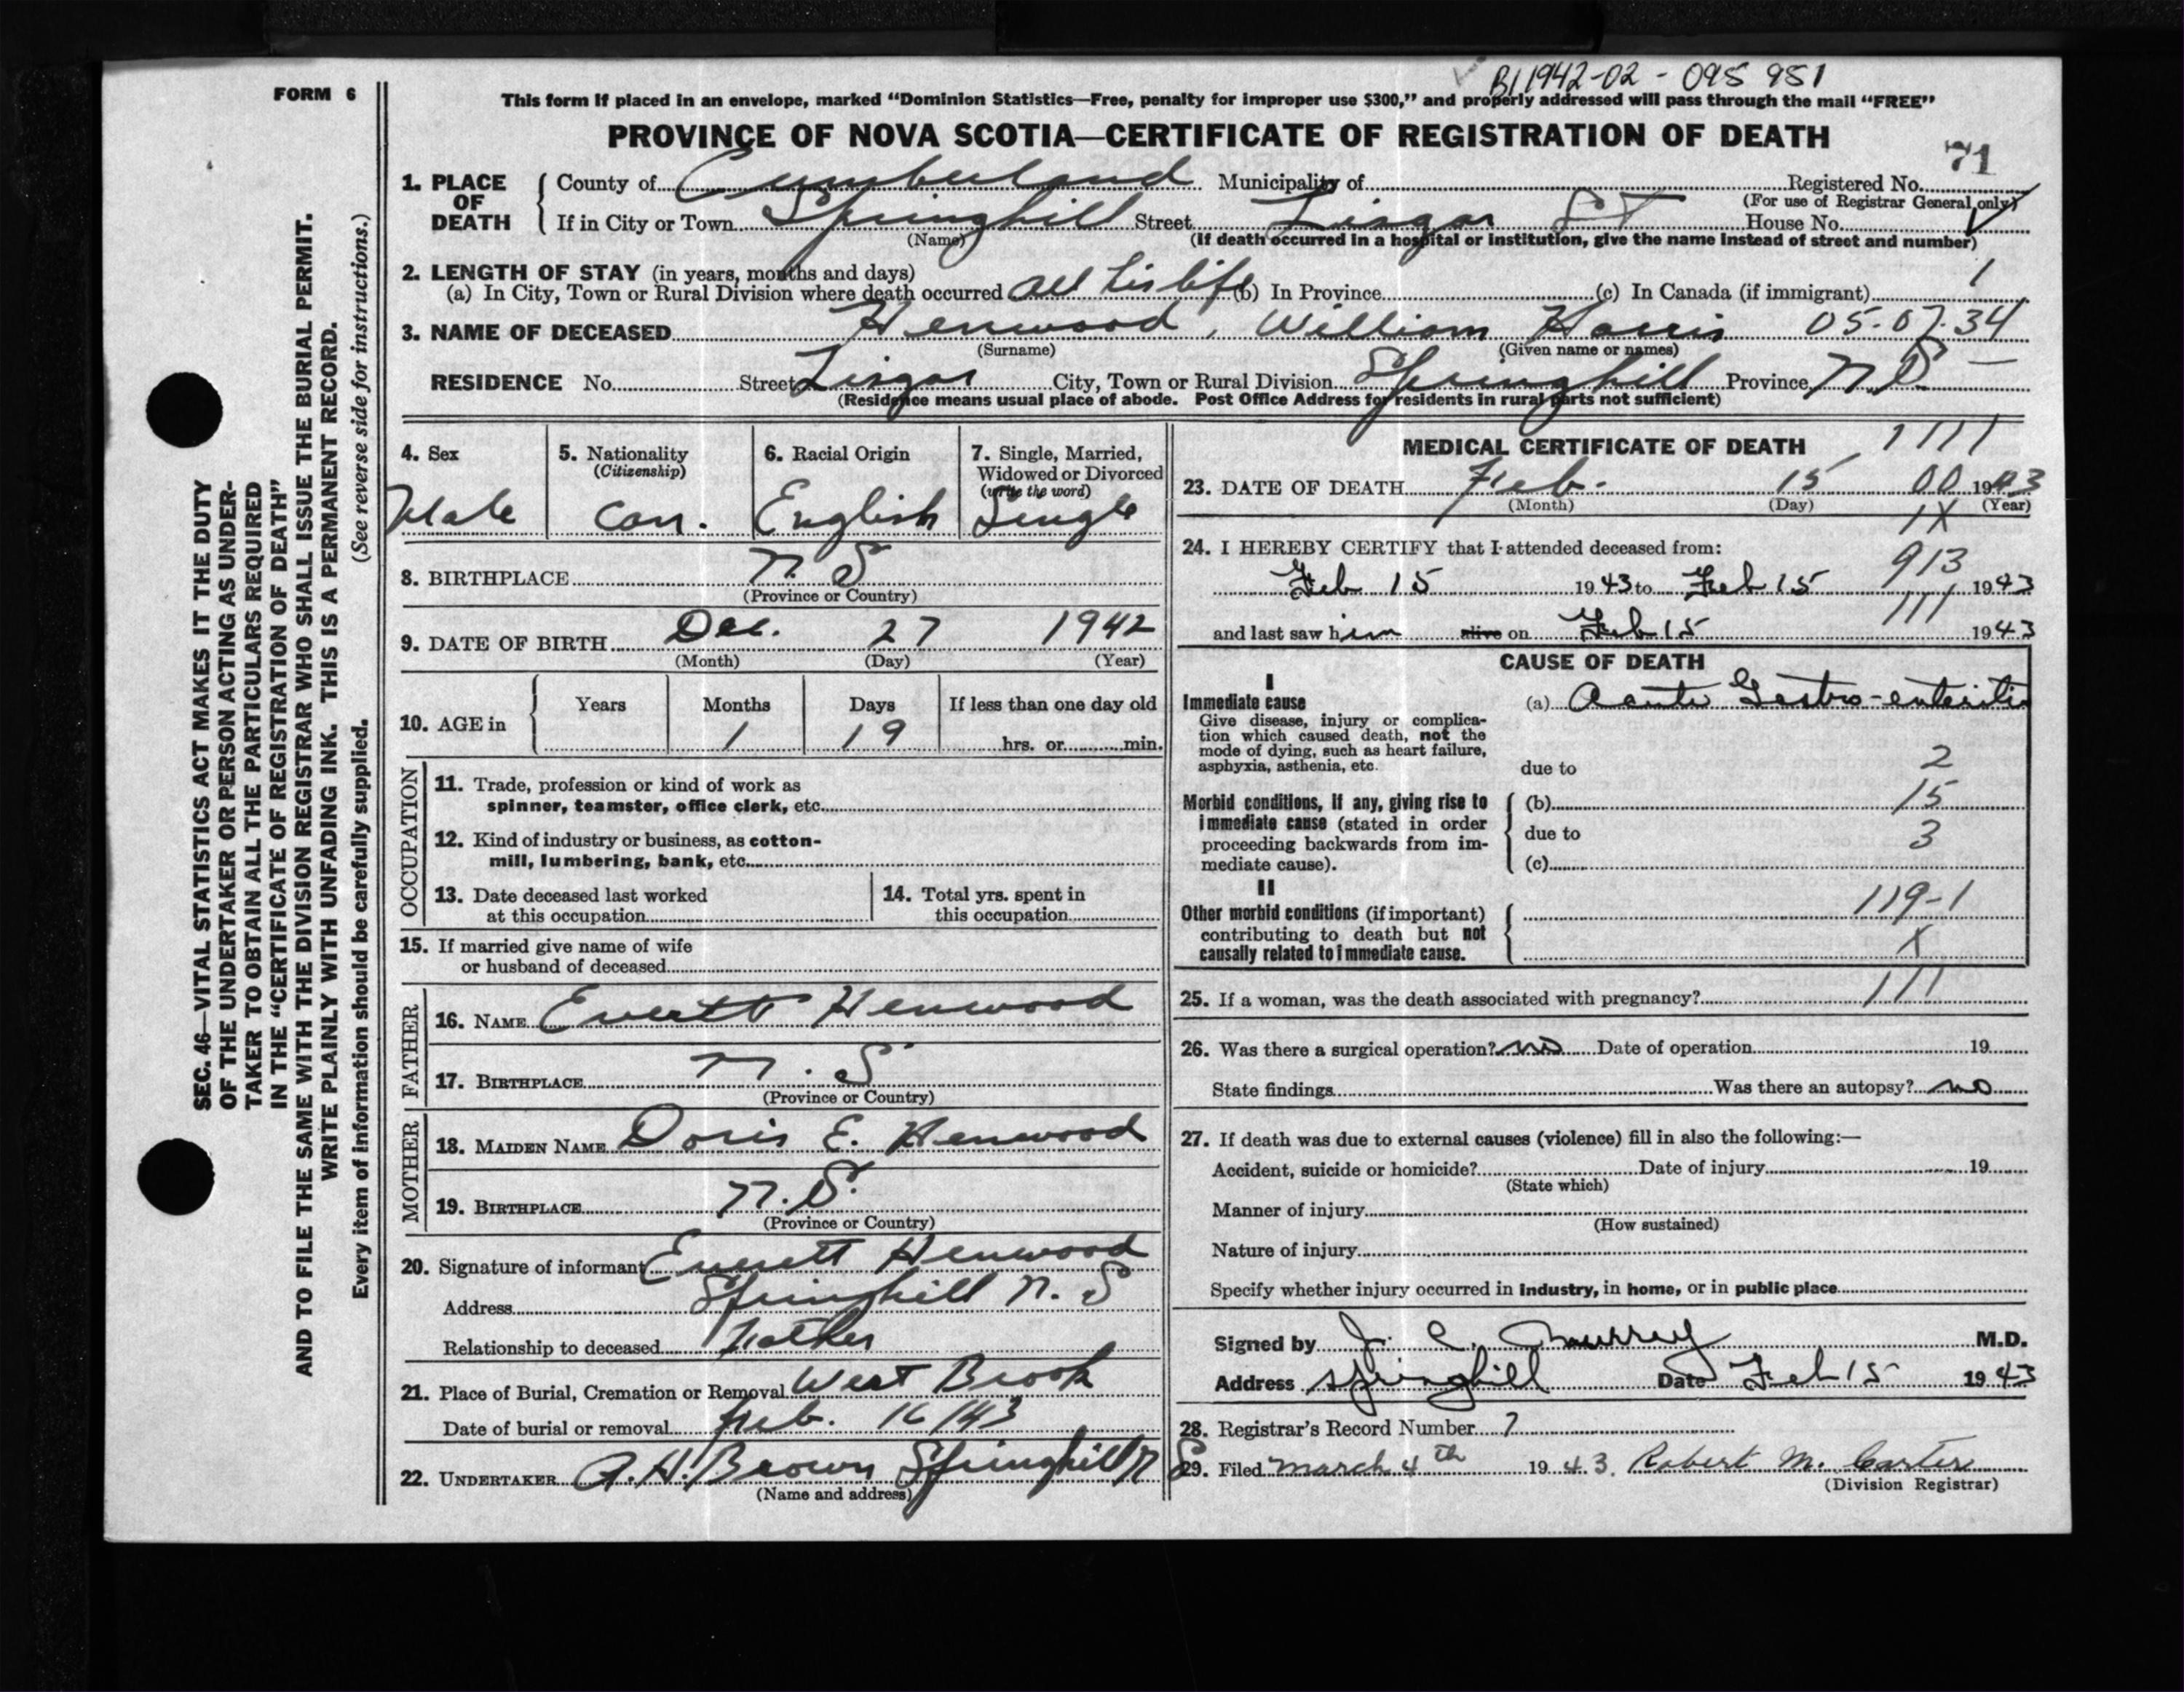 B1 1942-02-095 951
FORM 6
This form if placed in an envelope, marked “Dominion Statistics—Free, penalty for improper use $300,” and properly addressed will pass through the mail “FREE”
PROVINCE OF NOVA SCOTIA—CERTIFICATE OF REGISTRATION OF DEATH
71
1. PLACE OF DEATH
County of Cumberland Municipality of Registered No.
(For use of Registrar General only)
If in City or Town Springhill Street Lisgar ST House No.
(Name) (If death occurred in a hospital or institution, give the name instead of street and number)
2. LENGTH OF STAY (in years, months and days)
(a) In City, Town or Rural Division where death occurred all his life (b) In Province (c) In Canada (if immigrant) 1
3. NAME OF DECEASED Henwood, William Harris 05-07-34
(Surname) (Given name or names)
RESIDENCE No. Street Lisgar City, Town or Rural Division Springhill Province N.S. —
(Residence means usual place of abode. Post Office Address for residents in rural parts not sufficient)
4. Sex Male
5. Nationality (Citizenship) Can.
6. Racial Origin English
7. Single, Married, Widowed or Divorced (write the word) Single
8. BIRTHPLACE N. S
(Province or Country)
9. DATE OF BIRTH Dec. 27 1942
(Month) (Day) (Year)
10. AGE in Years Months Days If less than one day old
1 19 hrs. or min.
OCCUPATION
11. Trade, profession or kind of work as
spinner, teamster, office clerk, etc.
12. Kind of industry or business, as cotton-
mill, lumbering, bank, etc.
13. Date deceased last worked
at this occupation
14. Total yrs. spent in
this occupation
15. If married give name of wife
or husband of deceased
FATHER
16. NAME Everett Henwood
17. BIRTHPLACE N. S
(Province or Country)
MOTHER
18. MAIDEN NAME Doris E. Henwood
19. BIRTHPLACE N. S.
(Province or Country)
20. Signature of informant Everett Henwood
Address Springhill N. S
Relationship to deceased Father
21. Place of Burial, Cremation or Removal West Brook
Date of burial or removal Feb. 16/43
22. UNDERTAKER A. H. Brown Springhill N S
(Name and address)
MEDICAL CERTIFICATE OF DEATH 1111
23. DATE OF DEATH Feb. 15 00 1943
(Month) (Day) (Year)
1X
24. I HEREBY CERTIFY that I attended deceased from:
913
Feb 15 1943 to Feb 15 1943
111
and last saw him alive on Feb 15 1943
CAUSE OF DEATH
I
Immediate cause (a) Acute Gastro-enteritis
Give disease, injury or complica-
tion which caused death, not the
mode of dying, such as heart failure,
asphyxia, asthenia, etc.
due to 2
Morbid conditions, if any, giving rise to (b) 15
immediate cause (stated in order
proceeding backwards from im-
mediate cause).
due to 3
(c)
II
Other morbid conditions (if important) 119-1
contributing to death but not
causally related to immediate cause. X
25. If a woman, was the death associated with pregnancy? 111
26. Was there a surgical operation? no Date of operation 19
State findings Was there an autopsy? no
27. If death was due to external causes (violence) fill in also the following:—
Accident, suicide or homicide? Date of injury 19
(State which)
Manner of injury
(How sustained)
Nature of injury
Specify whether injury occurred in industry, in home, or in public place
Signed by J. C. Murray M.D.
Address Springhill Date Feb 15 1943
28. Registrar's Record Number 7
29. Filed March 4th 1943. Robert M. Carter
(Division Registrar)
SEC. 46—VITAL STATISTICS ACT MAKES IT THE DUTY
OF THE UNDERTAKER OR PERSON ACTING AS UNDER-
TAKER TO OBTAIN ALL THE PARTICULARS REQUIRED
IN THE “CERTIFICATE OF REGISTRATION OF DEATH”
AND TO FILE THE SAME WITH THE DIVISION REGISTRAR WHO SHALL ISSUE THE BURIAL PERMIT.
WRITE PLAINLY WITH UNFADING INK. THIS IS A PERMANENT RECORD.
Every item of information should be carefully supplied. (See reverse side for instructions.)